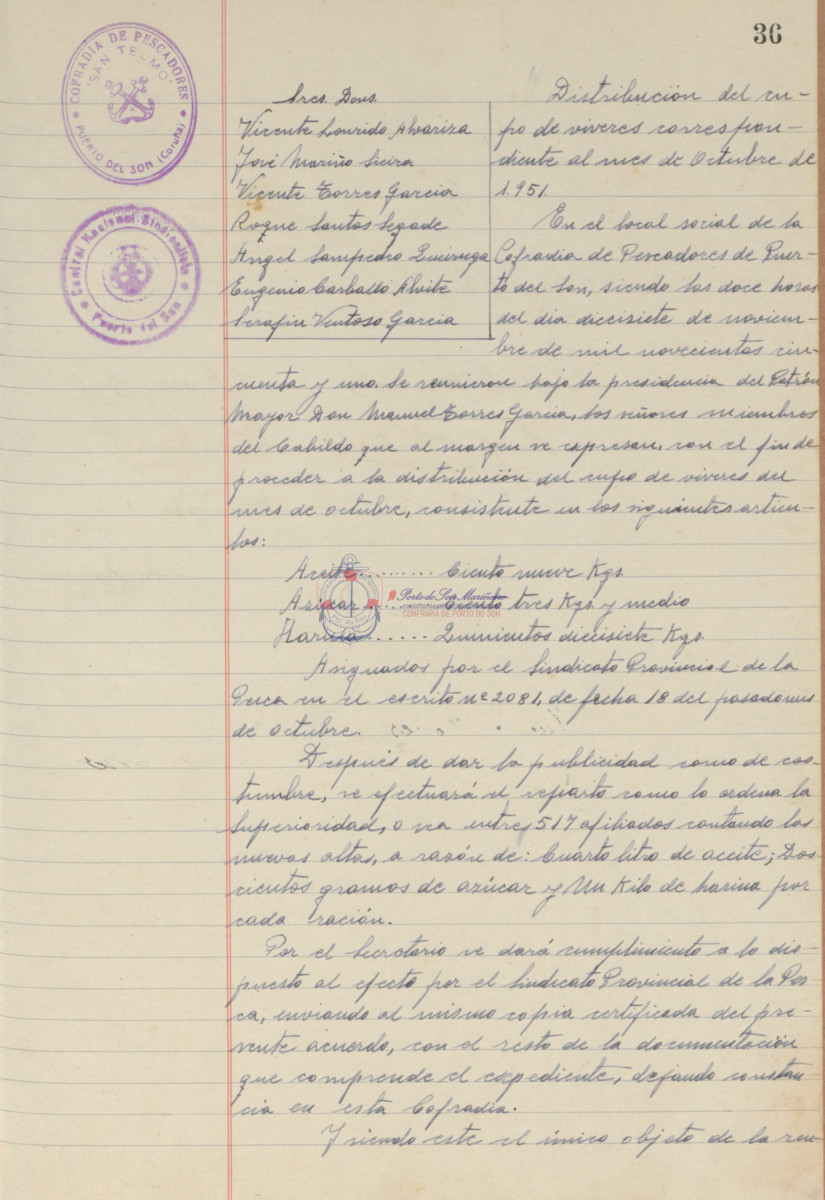 36
COFRADIA DE PESCADORES
"SAN TELMO"
PUERTO DEL SON (Coruña)
Central Nacional Sindicalista
Puerto del Son
Sres. Dons.
Vicente Lourido Alvariza
José Mariño Sieira
Vicente Torres Garcia
Roque Santos Segade
Angel Sampedro Quiruga
Eugenio Carballo Alvite
Serafin Ventoso Garcia
Distribución del cu-
po de viveres correspon-
diente al mes de Octubre de
1.951
En el local social de la
Cofradia de Pescadores de Puer-
to del Son, siendo las doce horas
del dia diecisiete de noviem-
bre de mil novecientos cin-
cuenta y uno. Se reunieron bajo la presidencia del Patrón
Mayor Don Manuel Torres Garcia, los señores miembros
del Cabildo que al margen se expresan, con el fin de
proceder a la distribución del cupo de viveres del
mes de octubre, consistente en los siguientes articu-
los:
Aceite ......... Ciento nueve Kgs.
Azúcar ....... Ciento tres Kgs y medio
Harina ...... Quinientos diecisiete Kgs.
Porto do Son Mariñeiro
CONFRARIA DE PORTO DO SON
Asignados por el Sindicato Provincial de la
Pesca en el escrito nº 2081, de fecha 18 del pasado mes
de octubre.
Después de dar la publicidad como de cos-
tumbre, se efectuará el reparto como lo ordena la
Superioridad, o sea entre 517 afiliados contando las
nuevas altas, a razón de: Cuarto litro de aceite; Dos-
cientos gramos de azúcar y Un Kilo de harina por
cada ración.
Por el Secretario se dará cumplimiento a lo dis-
puesto al efecto por el Sindicato Provincial de la Pes-
ca, enviando al mismo copia certificada del pre-
sente acuerdo, con el resto de la documentación
que comprende el expediente, dejando constan-
cia en esta Cofradia.
Y siendo este el único objeto de la reu-